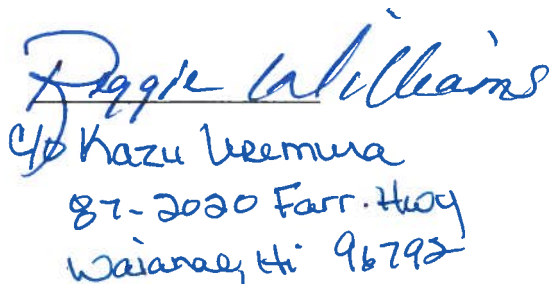 Reggie Williams
c/o Kazu Uemura
87-2020 Farr. Hwy
Waianae, Hi 96792